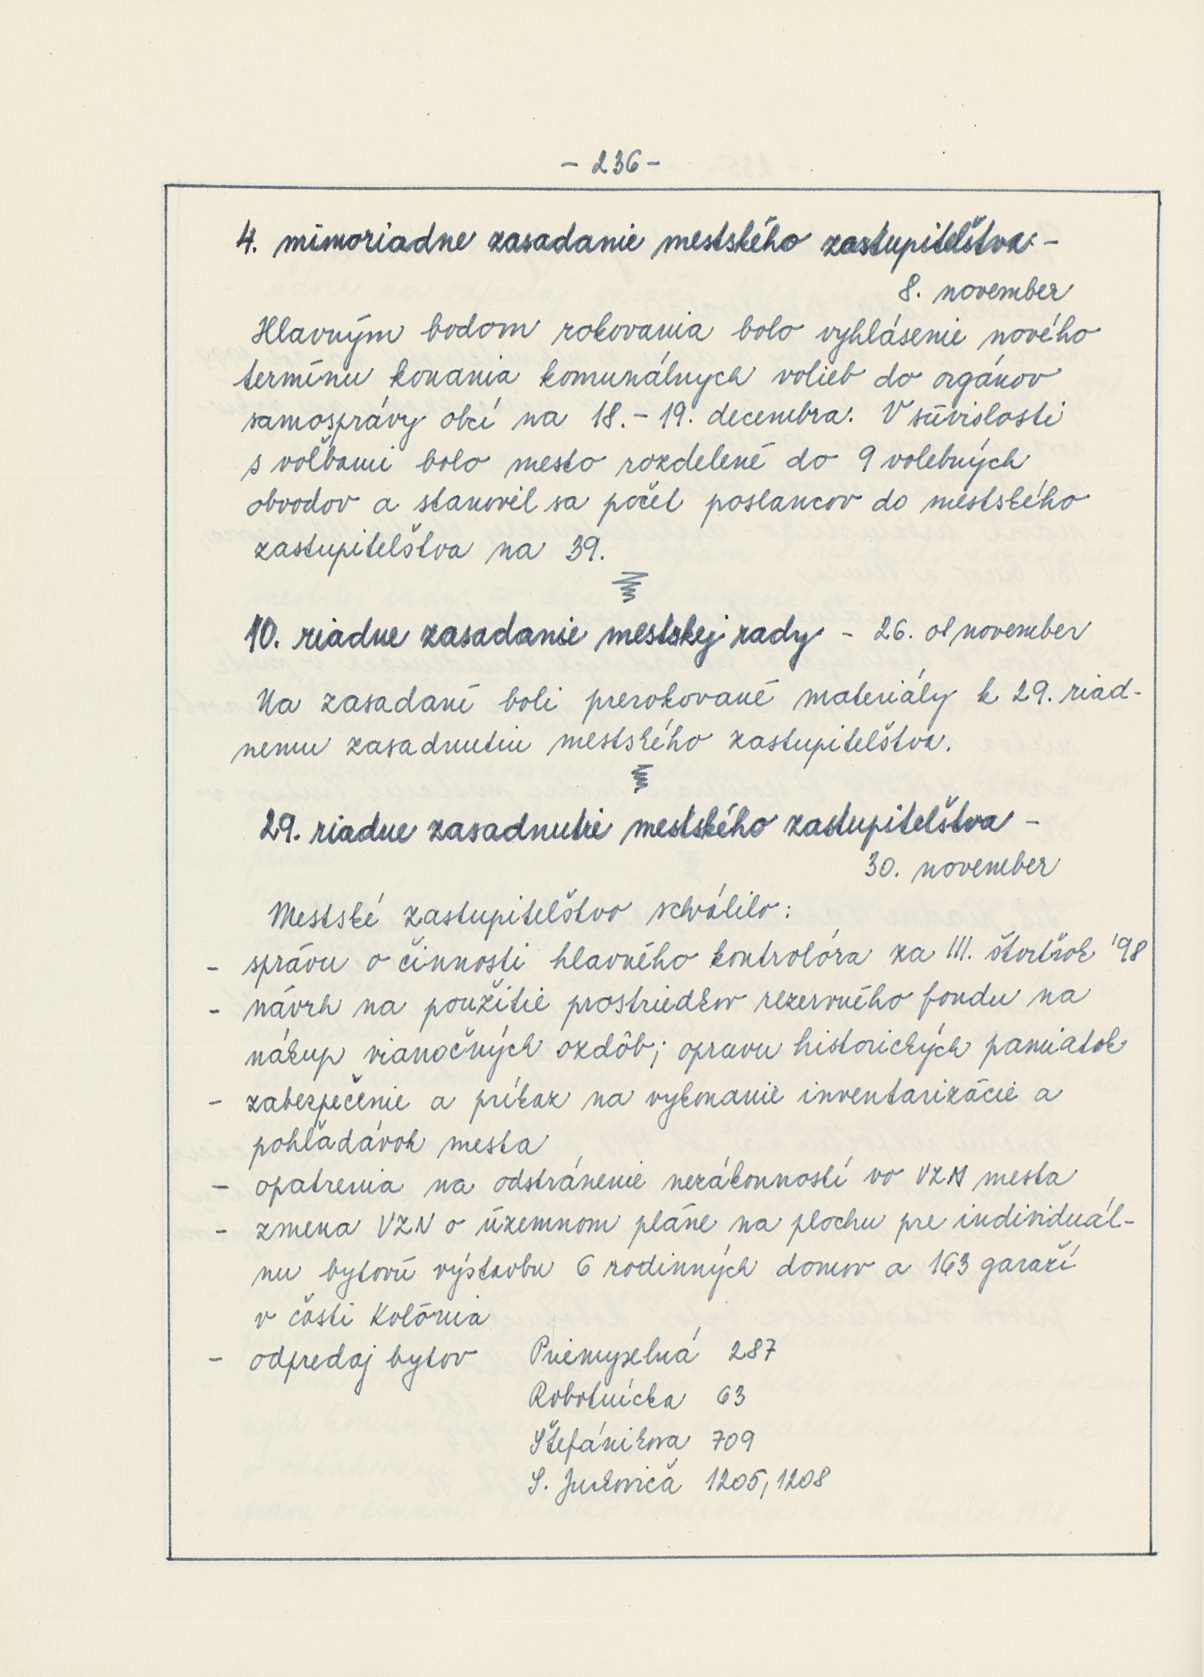 - 236 -
4. mimoriadne zasadanie mestského zastupiteľstva -
8. november
Hlavným bodom rokovania bolo vyhlásenie nového
termínu konania komunálnych volieb do orgánov
samosprávy obcí na 18. - 19. decembra. V súvislosti
s voľbami bolo mesto rozdelené do 9 volebných
obvodov a stanovil sa počet poslancov do mestského
zastupiteľstva na 39.
10. riadne zasadanie mestskej rady - 26. november
Na zasadaní boli prerokované materiály k 29. riad-
nemu zasadnutiu mestského zastupiteľstva.
29. riadne zasadnutie mestského zastupiteľstva -
30. november
Mestské zastupiteľstvo schválilo:
- správu o činnosti hlavného kontrolóra za III. štvrťrok '98
- návrh na použitie prostriedkov rezervného fondu na
nákup vianočných ozdôb; opravu historických pamiatok
- zabezpečenie a príkaz na vykonanie inventarizácie a
pohľadávok mesta
- opatrenia na odstránenie nezákonností vo VZN mesta
- zmena VZN o územnom pláne na plochu pre individuál-
nu bytovú výstavbu 6 rodinných domov a 163 garaží
v časti Kolónia
- odpredaj bytov Priemyselná 287
Robotnícka 63
Štefánikova 709
S. Jurkoviča 1205, 1208